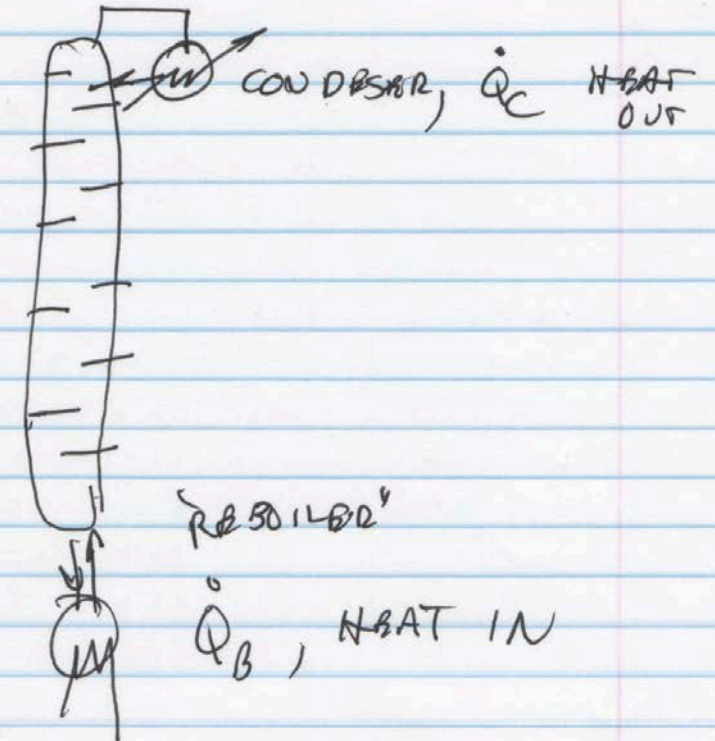 CONDESER, Q̇_C HEAT
OUT
"REBOILER"
Q̇_B, HEAT IN